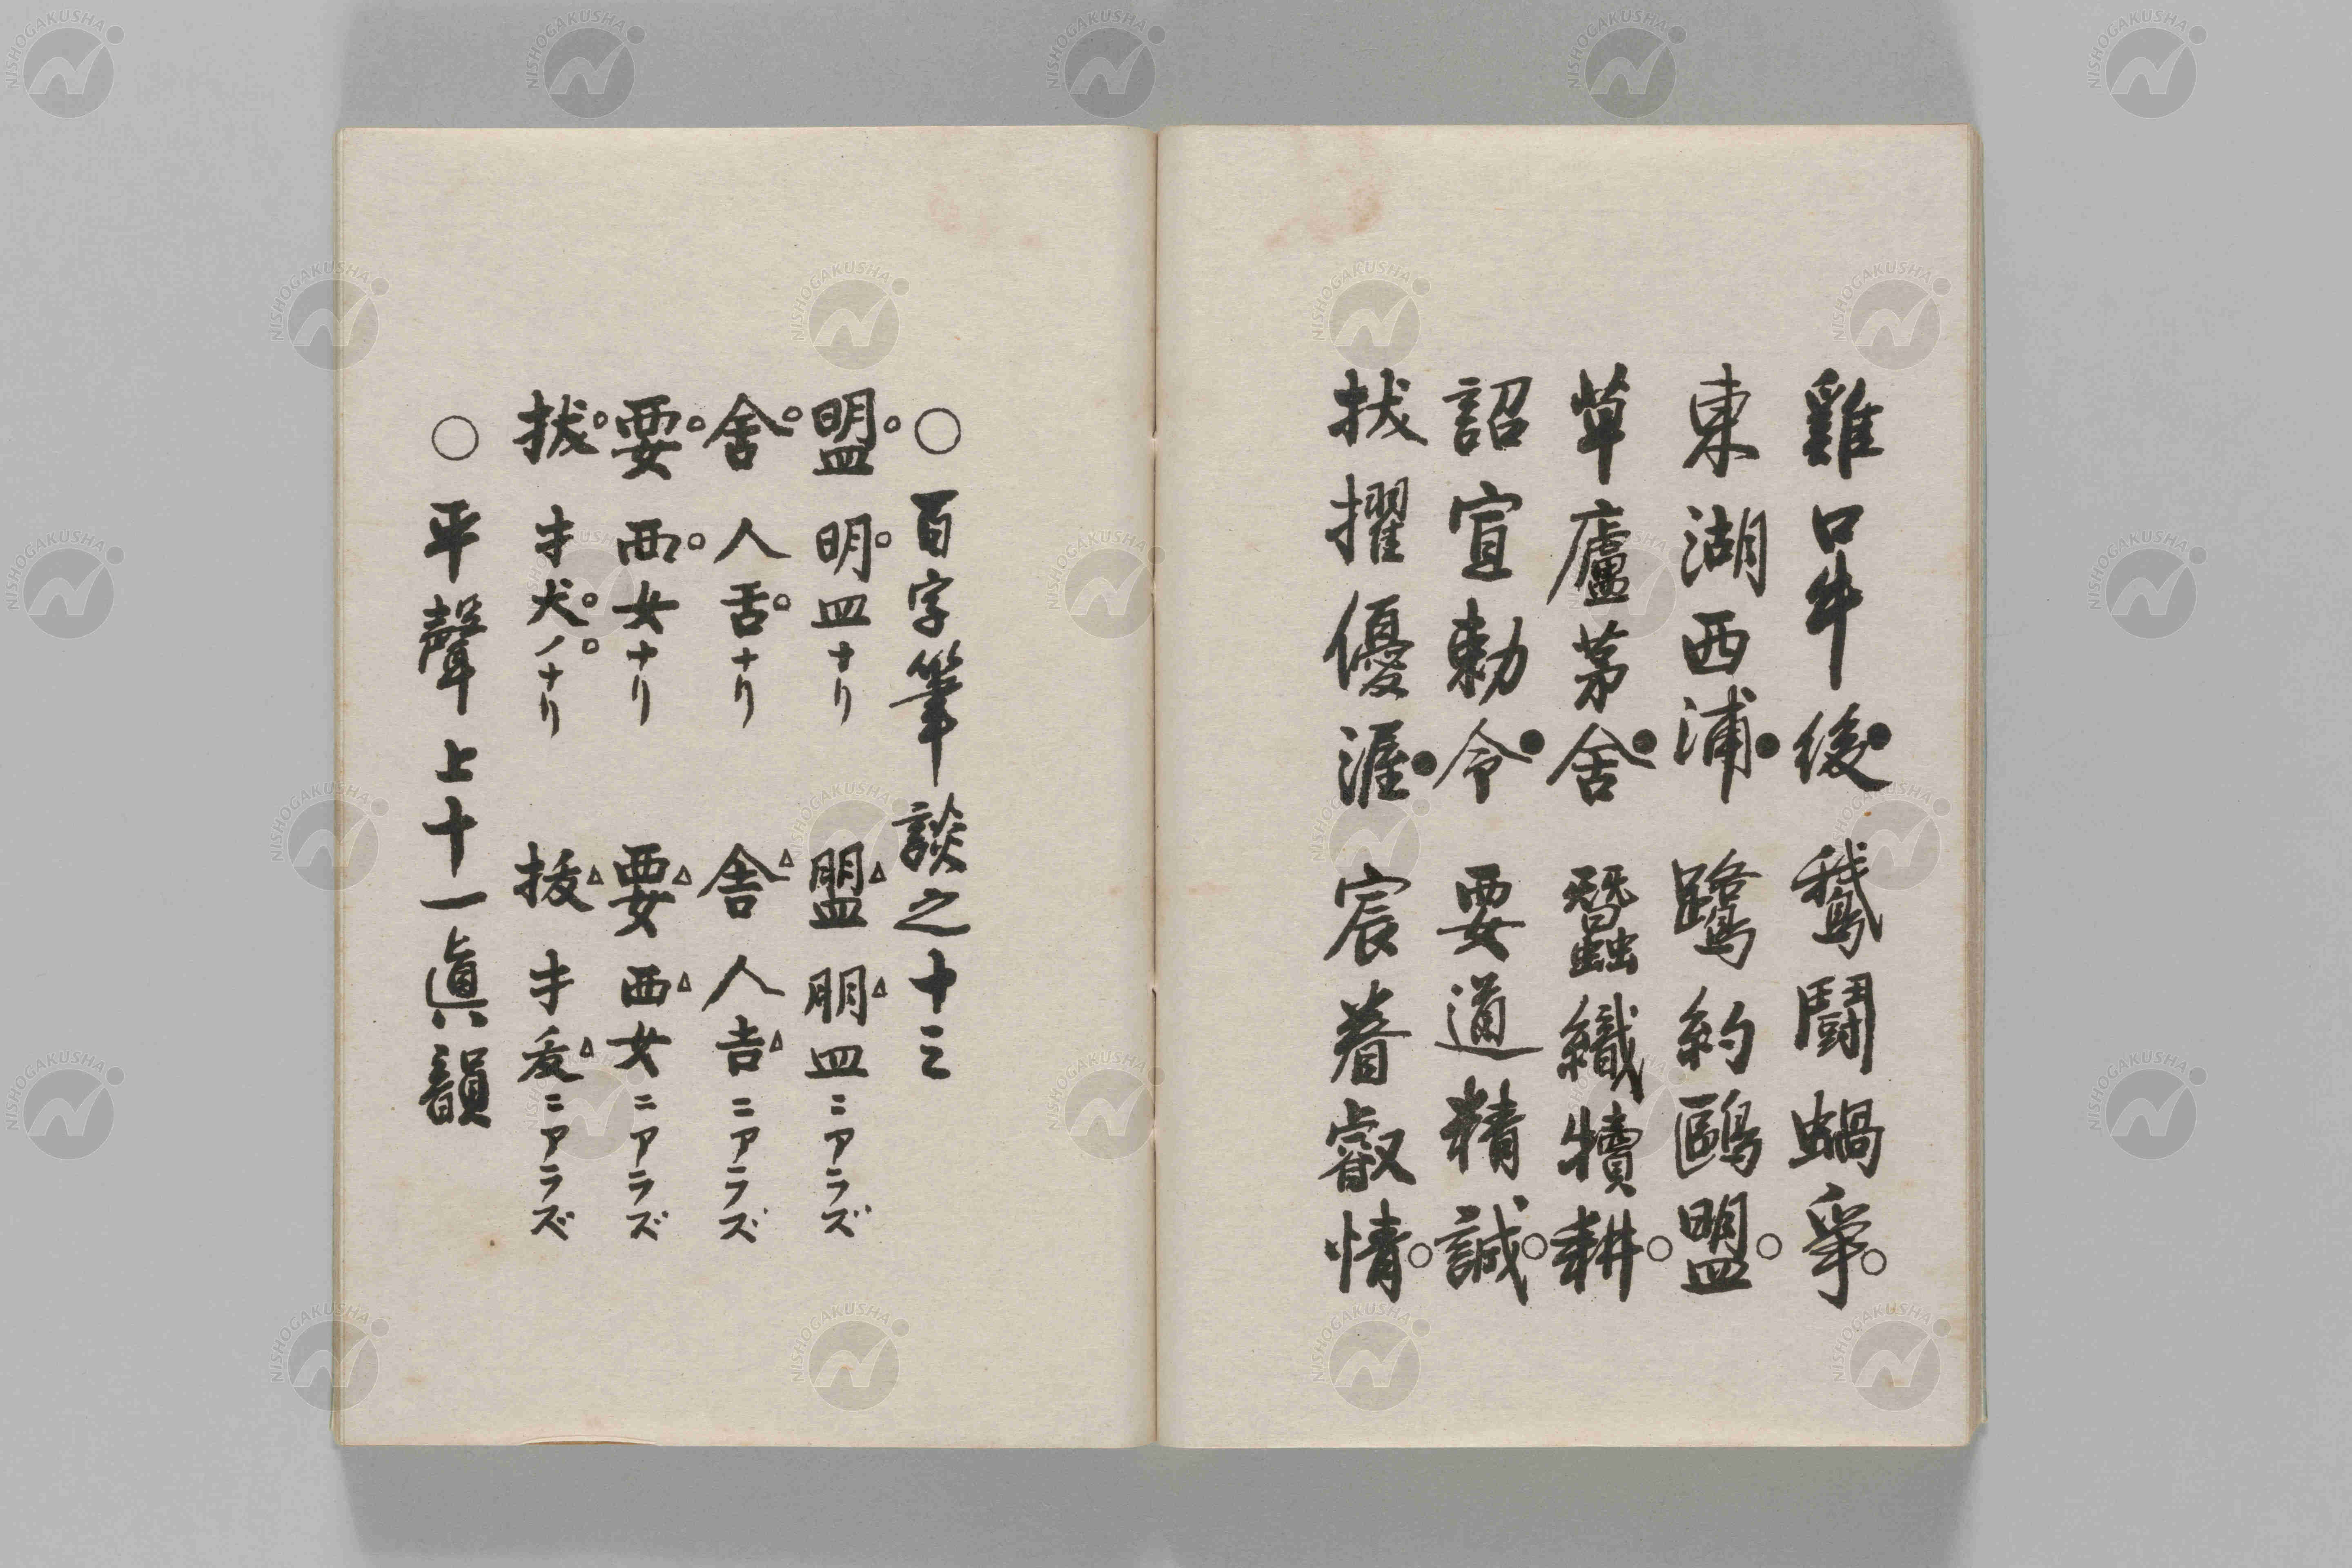 雞口牛後●鵝鬪蝸爭○
東湖西浦●鷺約鷗盟○
草廬茅舍●蠶織犢耕○
詔宣勅令●要道精誠○
拔擢優渥●宸眷叡情○
○百字筆談之十三
盟○明○皿ナリ 盟△朋△皿ニアラズ
舍○人舌○ナリ 舍△人吉△ニアラズ
要○西○女ナリ 要△西△女ニアラズ
拔○才犬○ノ○ナリ 才ニアラズ
○平聲上十一眞韻
NISHOGAKUSHA